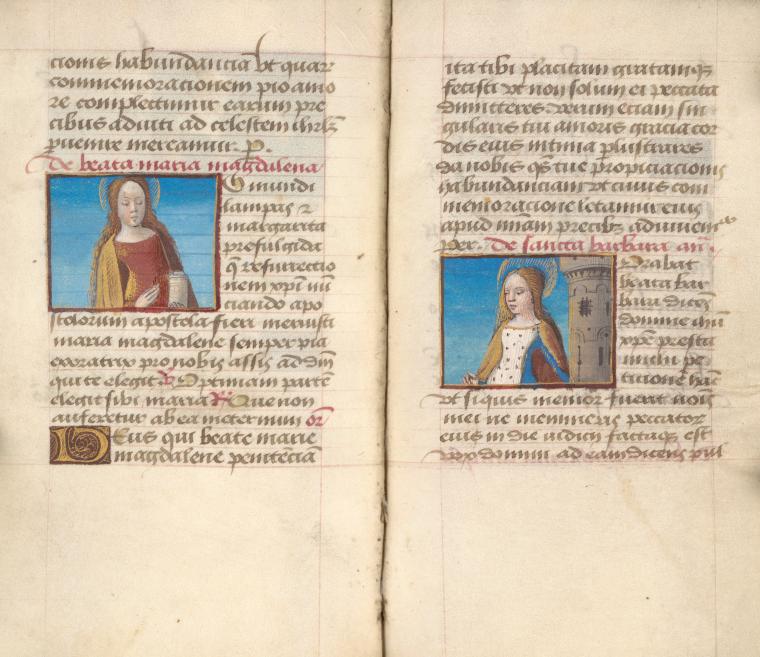 cionis habundancia vt quar
commemoracionem pio amo
re complectimur earum pre
cibus adiuti ad celestem ihrlm
puenire mereamur. P.
De beata maria magdalena
O mundi
lampas 2
margarita
prefulgida
q̄ resurrectio
nem xpi nū
ciando apo
stolorum apostola fieri meruisti
maria magdalene semper pia
exoratrix pro nobis assis ad dm̄
qui te elegit ℣ Optimam partē
elegit sibi maria ℟ Que non
auferetur ab ea in eternum or̄
Deus qui beate marie
magdalene penitēciā
ita tibi placitam gratamq₃
fecisti vt non solum ei peccata
dimitteres verum eciam sin
gularis tui amoris gracia cor
dis eius intima plustrares
da nobis qs̄ tue propiciacionis
habundanciam vt cuius com
memoracione letamur eius
apud miam precib₃ adiuuem
Per. De sancta barbara an̄.
Orabat
beata bar
bara dicēs
domine mi
xpe presta
michi pe
ticione hāc
vt si quis memor fuerit nois
mei ne memineris peccator
eius in die iudicii factaq₃ est
vox domini ad eam dicens